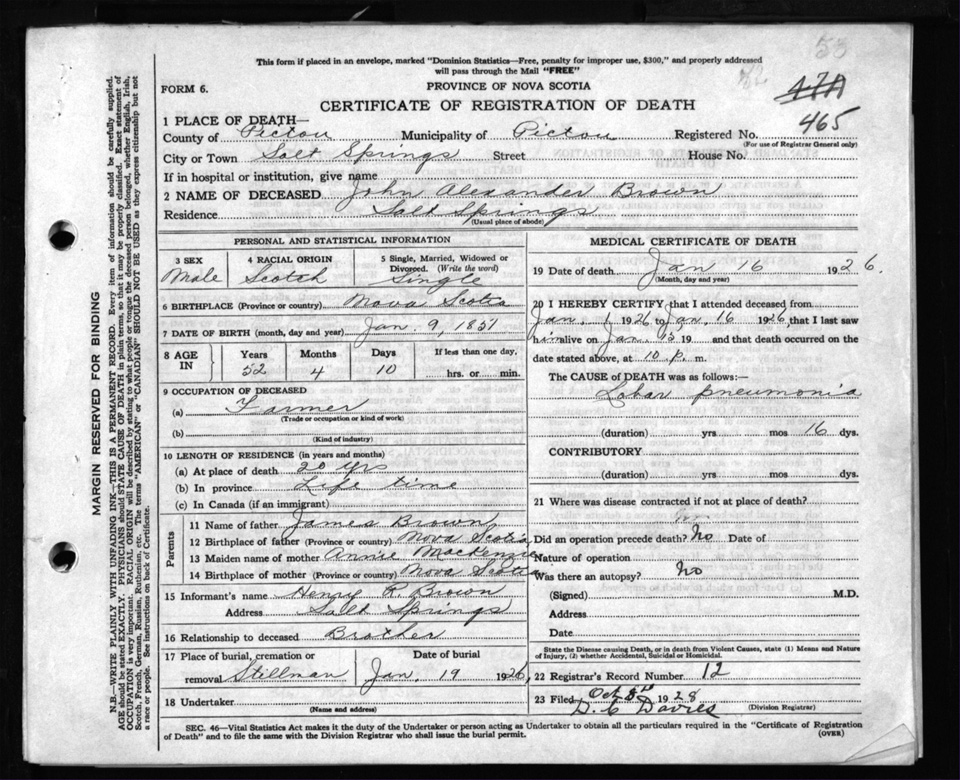 55
This form if placed in an envelope, marked "Dominion Statistics—Free, penalty for improper use, $300," and properly addressed
will pass through the Mail "FREE"
FORM 6.
PROVINCE OF NOVA SCOTIA
47A
CERTIFICATE OF REGISTRATION OF DEATH
465
1 PLACE OF DEATH—
County of Pictou Municipality of Pictou Registered No.
(For use of Registrar General only)
City or Town Salt Springs Street House No.
If in hospital or institution, give name
2 NAME OF DECEASED John Alexander Brown
Residence Salt Springs
(Usual place of abode)
PERSONAL AND STATISTICAL INFORMATION
3 SEX 4 RACIAL ORIGIN 5 Single, Married, Widowed or
Divorced. (Write the word)
Male Scotch Single
6 BIRTHPLACE (Province or country) Nova Scotia
7 DATE OF BIRTH (month, day and year) Jan. 9, 1851
8 AGE IN Years Months Days If less than one day,
52 4 10 hrs. or min.
9 OCCUPATION OF DECEASED
(a) Farmer
(Trade or occupation or kind of work)
(b)
(Kind of industry)
10 LENGTH OF RESIDENCE (in years and months)
(a) At place of death 20 yrs
(b) In province Life time
(c) In Canada (if an immigrant)
Parents
11 Name of father James Brown
12 Birthplace of father (Province or country) Nova Scotia
13 Maiden name of mother Annie MacKenzie
14 Birthplace of mother (Province or country) Nova Scotia
15 Informant's name Henry R. Brown
Address Salt Springs
16 Relationship to deceased Brother
17 Place of burial, cremation or Date of burial
removal Stillman Jan. 19 1926
18 Undertaker
(Name and address)
MEDICAL CERTIFICATE OF DEATH
19 Date of death Jan 16 1926.
(Month, day and year)
20 I HEREBY CERTIFY that I attended deceased from
Jan. 1 1926 to Jan. 16 1926, that I last saw
him alive on Jan. 15 19 and that death occurred on the
date stated above, at 10 p. m.
The CAUSE of DEATH was as follows:—
Lobar pneumonia
(duration) yrs mos 16 dys.
CONTRIBUTORY
(duration) yrs mos dys.
21 Where was disease contracted if not at place of death?
Did an operation precede death? No Date of
Nature of operation
Was there an autopsy? No
(Signed) M.D.
Address
Date
State the Disease causing Death, or in death from Violent Causes, state (1) Means and Nature
of Injury, (2) whether Accidental, Suicidal or Homicidal.
22 Registrar's Record Number 12
23 Filed Oct 5th 1928
D. C. Davies
(Division Registrar)
SEC. 46—Vital Statistics Act makes it the duty of the Undertaker or person acting as Undertaker to obtain all the particulars required in the "Certificate of Registration
of Death" and to file the same with the Division Registrar who shall issue the burial permit.
(OVER)
MARGIN RESERVED FOR BINDING
N.B.—WRITE PLAINLY WITH UNFADING INK—THIS IS A PERMANENT RECORD. Every item of information should be carefully supplied.
AGE should be stated EXACTLY. PHYSICIANS should STATE CAUSE OF DEATH in plain terms, so that it may be properly classified. Exact statement of
OCCUPATION is very important. RACIAL ORIGIN will be described by stating to what people or tongue the deceased person belonged, whether English, Irish,
Scotch, French, German, Russian, Ruthenian, etc. The terms "AMERICAN" or "CANADIAN" SHOULD NOT BE USED as they express citizenship but not
a race or people. See instructions on back of Certificate.